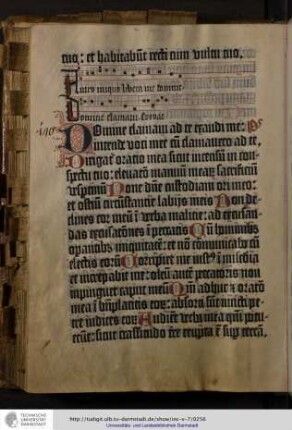 tuo: et habitabūt recti cum vultu tuo.
A viro iniquo libera me domine.
Domine clamavi Evovae
140
Domine clamavi ad te exaudi me: Ps
intende voci mee cū clamavero ad te.
Dirigat͛ oratio mea sicut incensū in con
spectu tuo: elevatō manuū mearū sacrificiū
vespertinū Pone dn̄e custodiam ori meo:
et ostiū circūstantie labijs meis Non de
clines cor meū ī verba malicie: ad excusan
das excusatōnes ī peccatis Cū hominibꝫ
opantibꝫ iniquitatē: et nō cōmunicabo cū
electis eorū Corripiet me iustꝰ ī misćdia
et increpabit me: oleū autē peccatoris non
impinguet caput meū Qm̄ adhuc ⁊ oratō
mea ī bn̄placitis eoꝝ: absorti sūt iuncti pe
tre iudices eoꝝ Audiēt verba mea qm̄ potu
erūt: sicut crassitudo tr̄e erupta ē sup terrā.
TECHNISCHE
UNIVERSITÄT
DARMSTADT
http://tudigit.ulb.tu-darmstadt.de/show/inc-v-7/0256
Universitäts- und Landesbibliothek Darmstadt